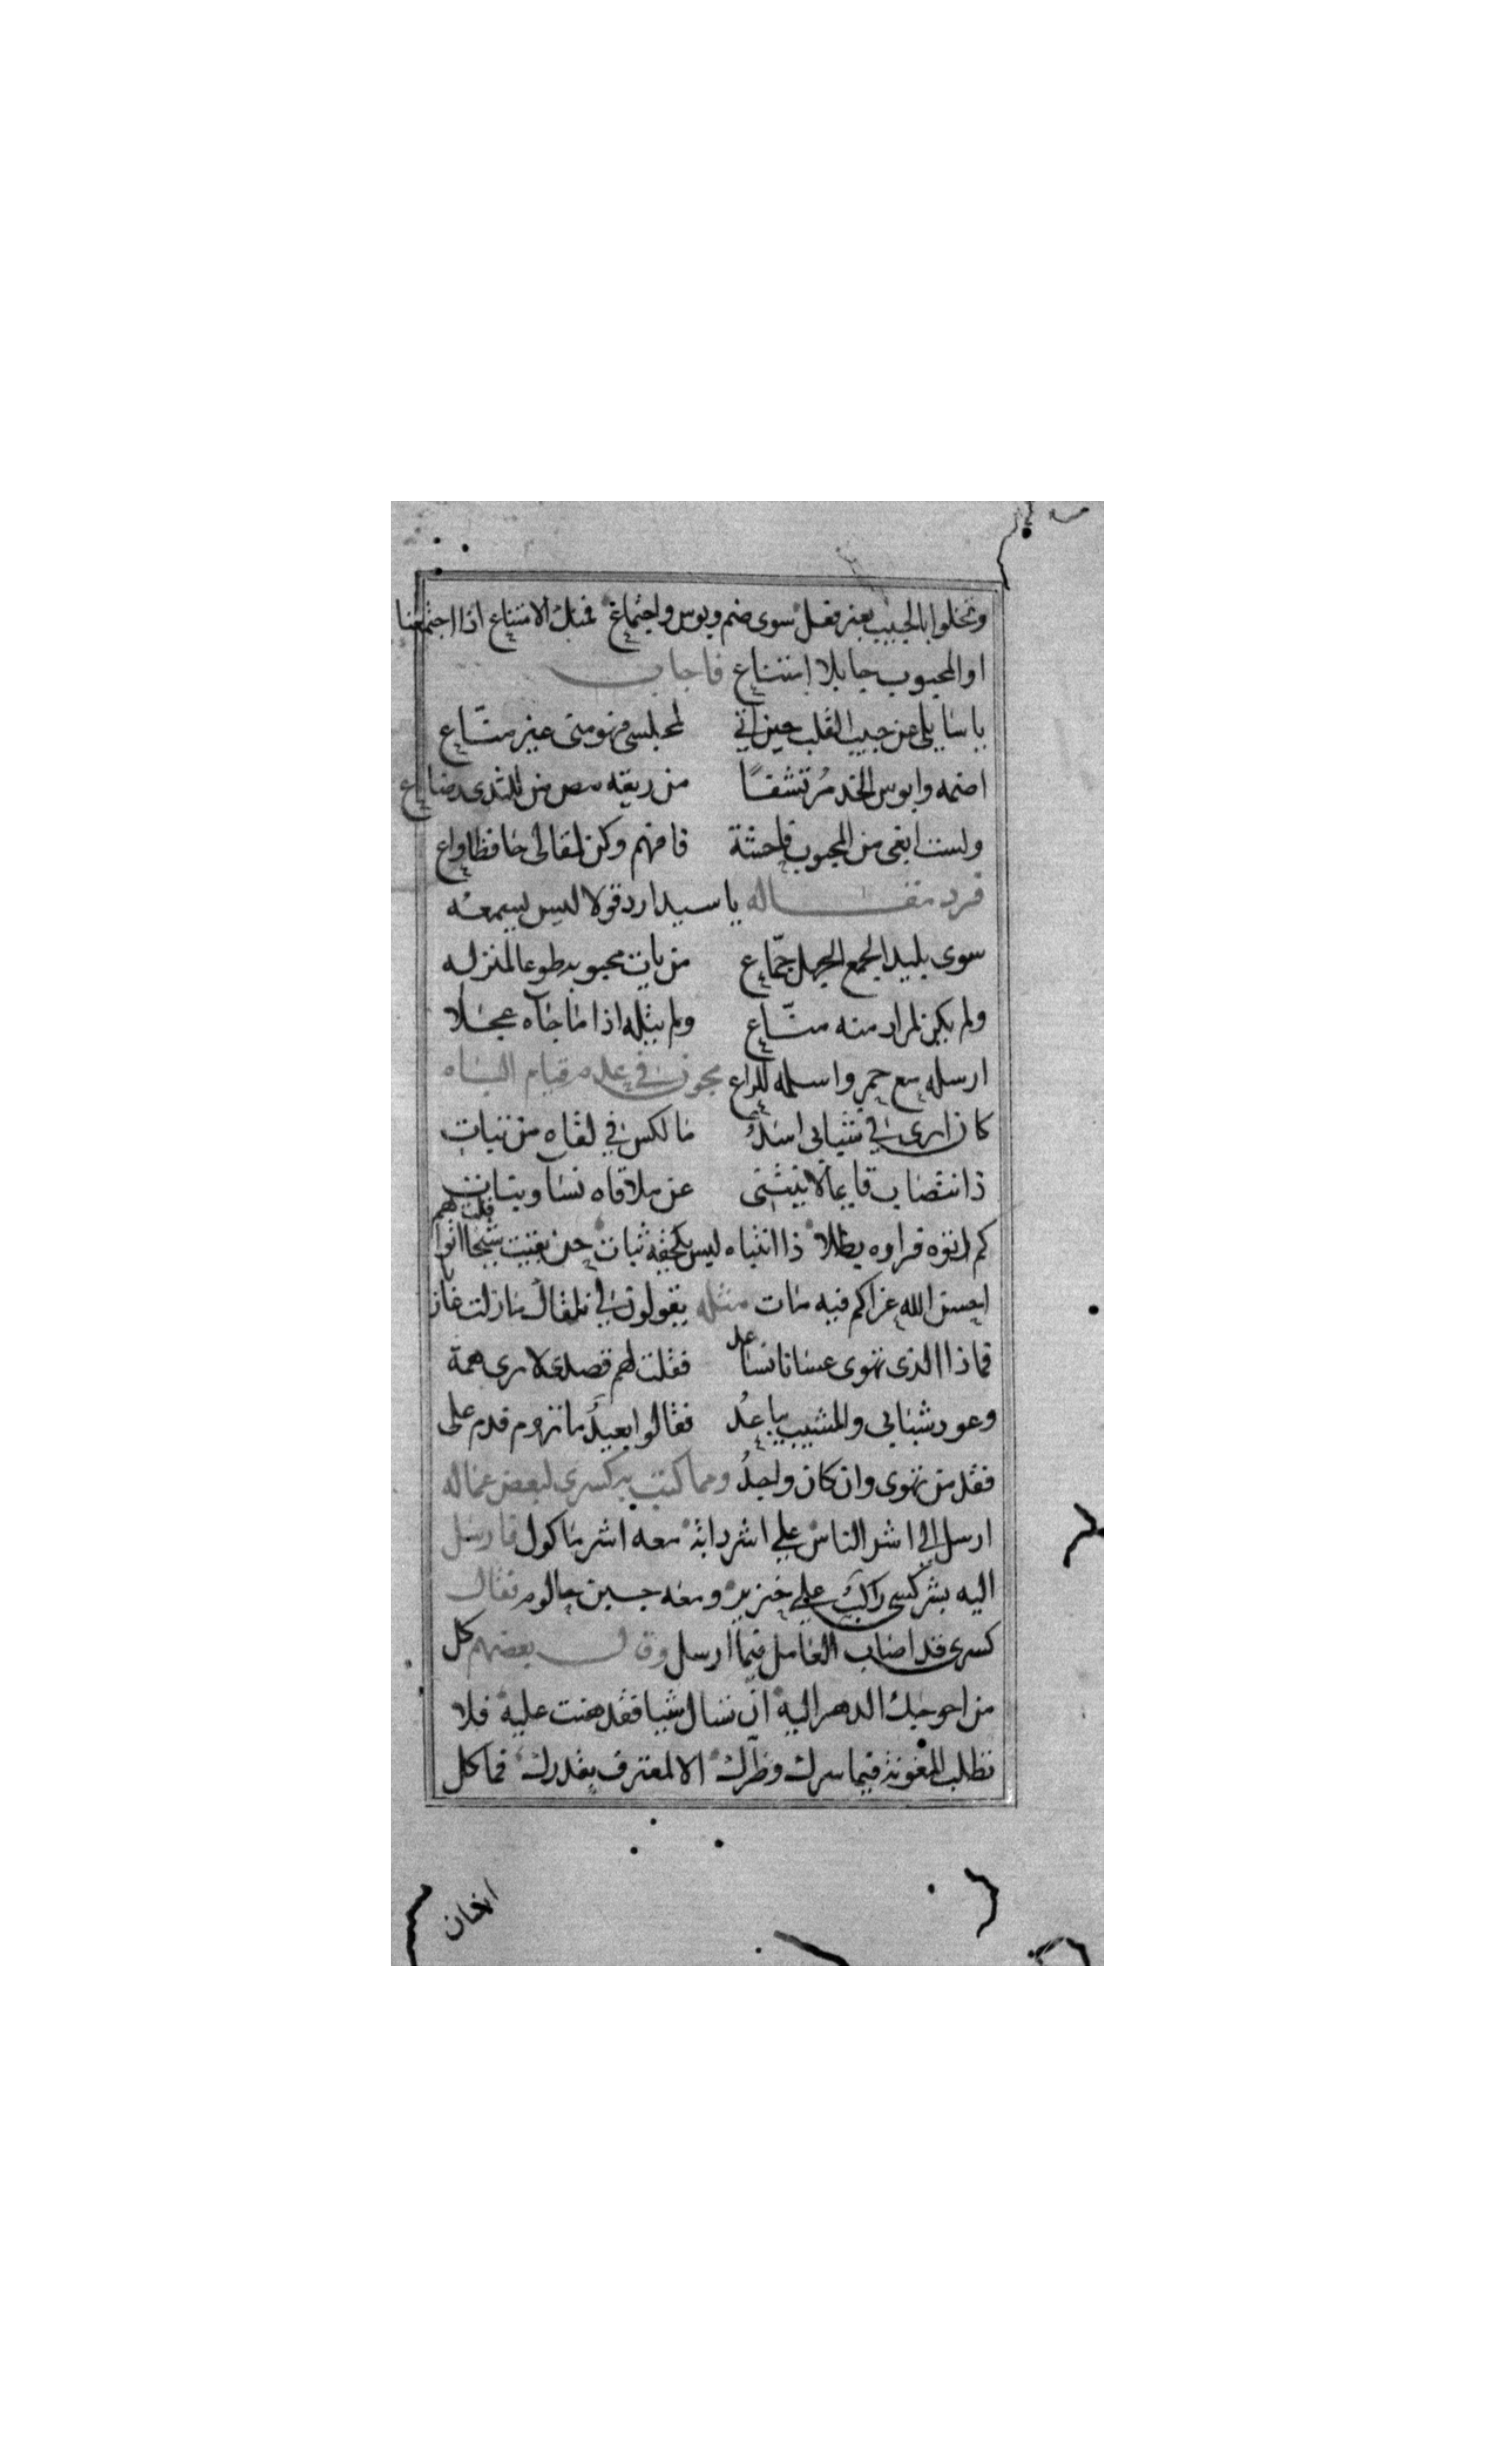 وتخلوا بالحبيب بغير فعل سوى ضم وبوس واجتماع فمنك الامتناع اذا اجتمعنا
او المحبوب جا بلا امتناع فاجاب
يا سايلي عن حبيب القلب حين اتي لمجلسي فهو مني غير مناع
اضمه وابوس الخد مرتشفا من ريقه مص من للثدي رضاع
ولست ابغي من المحبوب فاحشة فافهم وكن لمقالي حافظا واع
فرد مقاله يا سيدا رد قولا ليس يسمعه
سوى بليد الجمع الجهل جماع من يات محبوبه طوعا لمنزله
ولم يكن لمراد منه مناع ولم ينله اذا ما جاه عجلا
ارسله مع حمر واسلمه للراع مجون في عدم قيام الباه
كان ايري في شبابي اسد ما لكس في لقاه من ثبات
ذا انتصاب قايما لا ينثني عن ملاقاه نسا وبنات
كم اتوه فراوه بطلا ذا انتباه ليس يخفه ثبات حين بقيت شيخا اتوا قلت لهم
احسن الله عزاكم فيه مات مثله يقولون لي
فماذا الذي تهوى عسانا نساعد فقلت لهم قصدي لايري همة
وعود شبابي والمشيب يباعد فقالوا بعيد ما تروم فدم على
فقد من تهوى وان كان واحد ومما كتب به كسرى لبعض عماله
ارسل الي اشر الناس علي اشر دابة معه اشر ماكول فارسل
اليه بشركسي راكب علي خنزير ومعه جبن حالوم فقال
كسرى قد اصاب العامل فيما ارسل وقال بعضهم كل
من احوجك الدهر اليه ان تسال شيا فقد هنت عليه فلا
تطلب المعونة فيما سرك وضرك الا لمعترف بقدرك فما كل